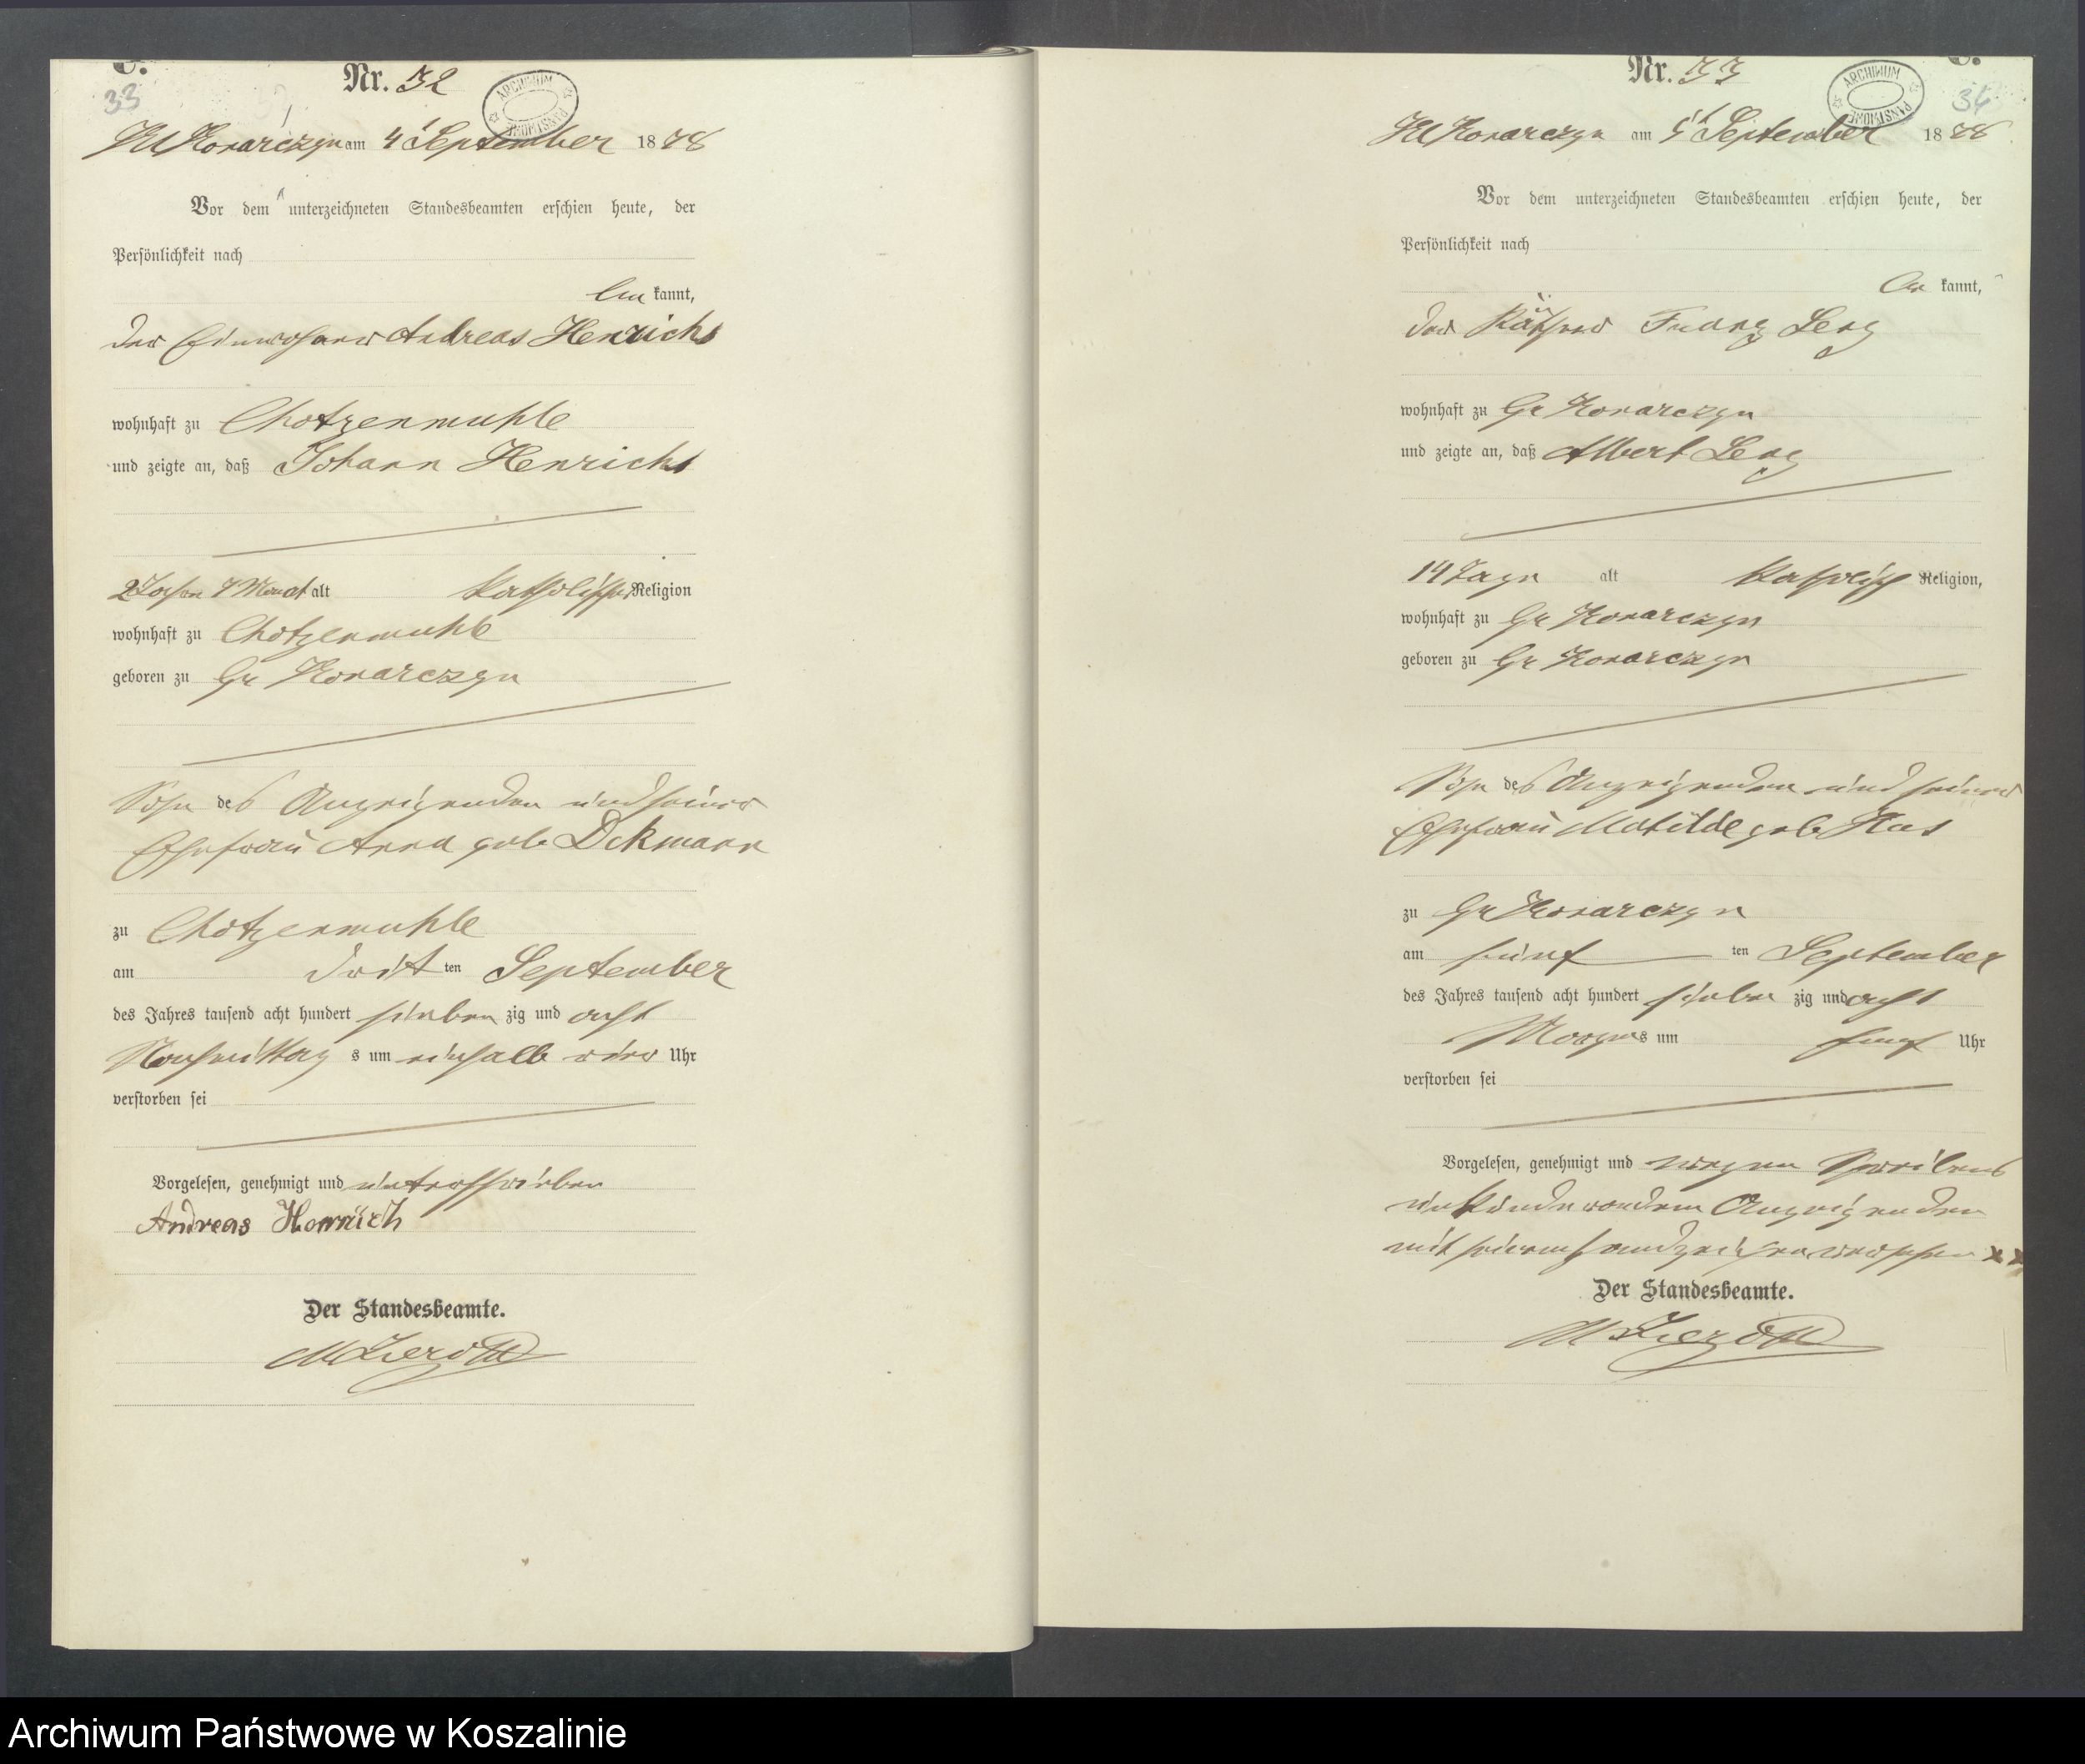 C.
33
Nr. 32
ARCHIWUM PAŃSTWOWE
Kl Konarczyn am 4 September 1878
Vor dem unterzeichneten Standesbeamten erschien heute, der
Persönlichkeit nach
be kannt,
der Einwohner Andreas Henrichs
wohnhaft zu Chotzenmuhle
und zeigte an, daß Johann Henrichs
2 Jahre 7 Monat alt katholischer Religion
wohnhaft zu Chotzenmuhle
geboren zu Gr Konarczyn
Sohn des Anzeigenden und seiner
Ehefrau Anna geb Dekmann
zu Chotzenmuhle
am drit ten September
des Jahres tausend acht hundert sieben zig und acht
Nachmittag s um einhalb vier Uhr
verstorben sei
Vorgelesen, genehmigt und unterschrieben
Andreas Henrich
Der Standesbeamte.
C.
34
Nr. 33
ARCHIWUM PAŃSTWOWE
Kl Konarczyn am 5 September 1878
Vor dem unterzeichneten Standesbeamten erschien heute, der
Persönlichkeit nach
be kannt,
der Käthner Franz
wohnhaft zu Gr Konarczyn
und zeigte an, daß Albert
14 Tage alt katholisch Religion,
wohnhaft zu Gr Konarczyn
geboren zu Gr Konarczyn
Sohn des Anzeigenden und seiner
Ehefrau Matilde geb
zu Gr Konarczyn
am fünf ten September
des Jahres tausend acht hundert sieben zig und acht
Morgens um fünf Uhr
verstorben sei
Vorgelesen, genehmigt und wegen Schreibens
unkunde von dem Anzeigenden
mit seinem Handzeichen versehen xx
Der Standesbeamte.
Archiwum Państwowe w Koszalinie